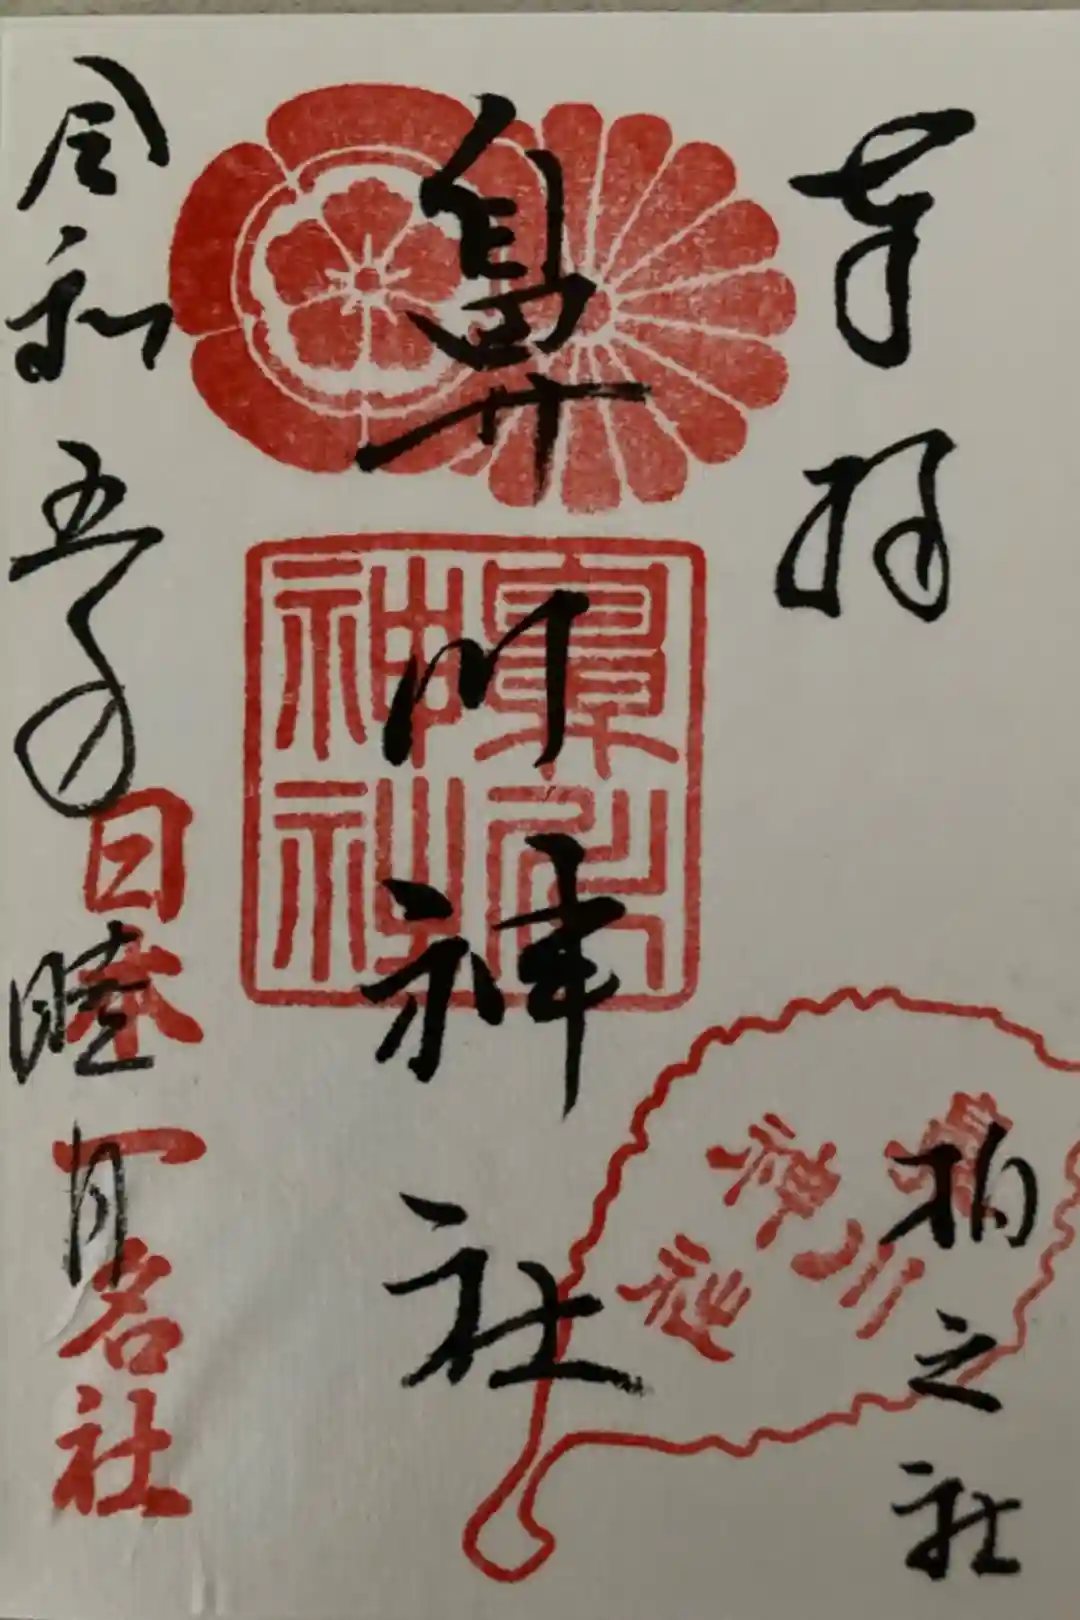 奉拝
柏之社
鼻川神社
鼻川神社
鼻川
神社
令和五年睦月
日本一名社